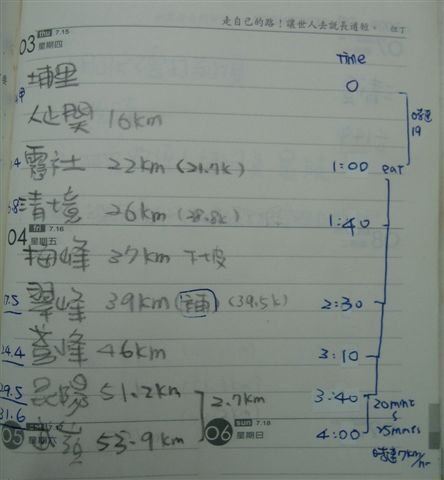 走自己的路！讓世人去說長道短。 但丁
03 thu 7.15
星期四
Time
埔里 0
人止関 16km
霧社 22km (21.7k) 1:00 eat
清境 26km (28.8k) 1:40
04 fri 7.16
星期五
梅峰 37km 下坡
17.5 翠峰 39km (補) (39.5k) 2:30
24.4 鳶峰 46km 3:10
29.5 昆陽 51.2km 3:40
2.7km
20mins
25mins
31.6 武嶺 53.9km 4:00
時速7km/hr
05
06 sun 7.18
星期日